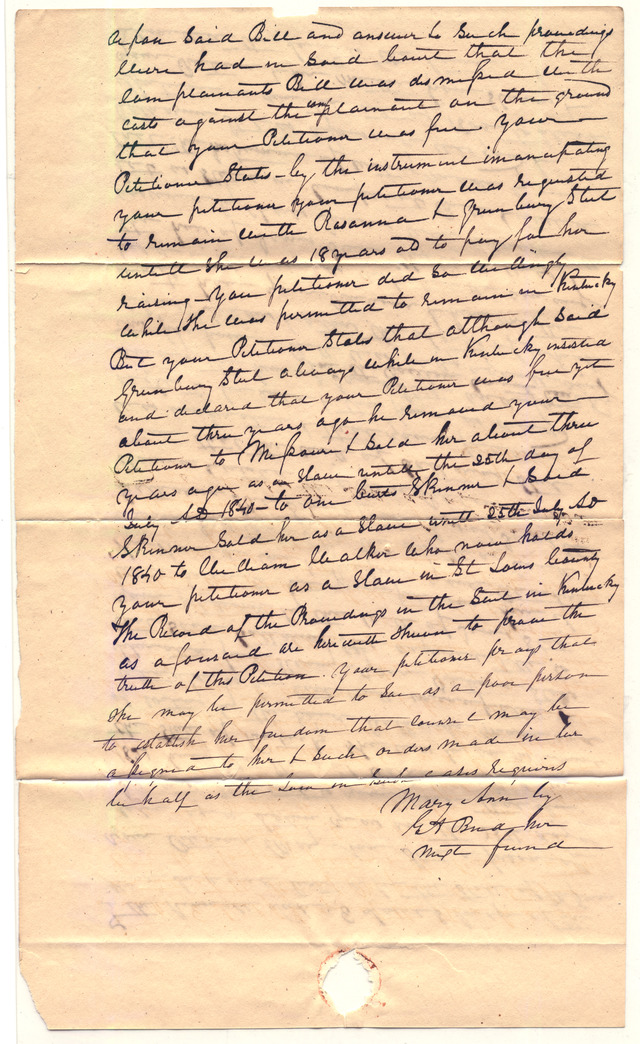 upon Said Bill and answer to Such proceedings
were had in Said Court that the
Complainants Bill was dismissed with
costs against the complainant on the ground
that your Petitioner was free your
Petitioner States - by the instrument imancipating
your petitioner your petitioner was requested
to remain with Rosanna & Greenbury Steel
untill She was 18 years old to pay for her
raising - your petitioner did So willingly
while She was permitted to remain in Kentucky
But your Petitioner States that although Said
Greenbury Steel always while in Kentucky insisted
and declared that your Petitioner was free yet
about three years ago he removed your
Petitioner to Missouri & Sold her about three
years ago as a Slave untill the 25th day of
July AD 1840 - to one Curtis Skinner & Said
Skinner Sold her as a Slave untill 25th July AD
1840 to William Walker who now holds
your petitioner as a Slave in St Louis County
The Record of the Proceedings in the Suit in Kentucky
as aforesaid are herewith Shewn to prove the
truth of this Petition. Your petitioner prays that
She may be permitted to Sue as a poor person
to establish her freedom that counsel may be
assigned to her & Such orders made in her
behalf as the Law in Such cases requires
Mary Ann by
G A Bird her
next friend